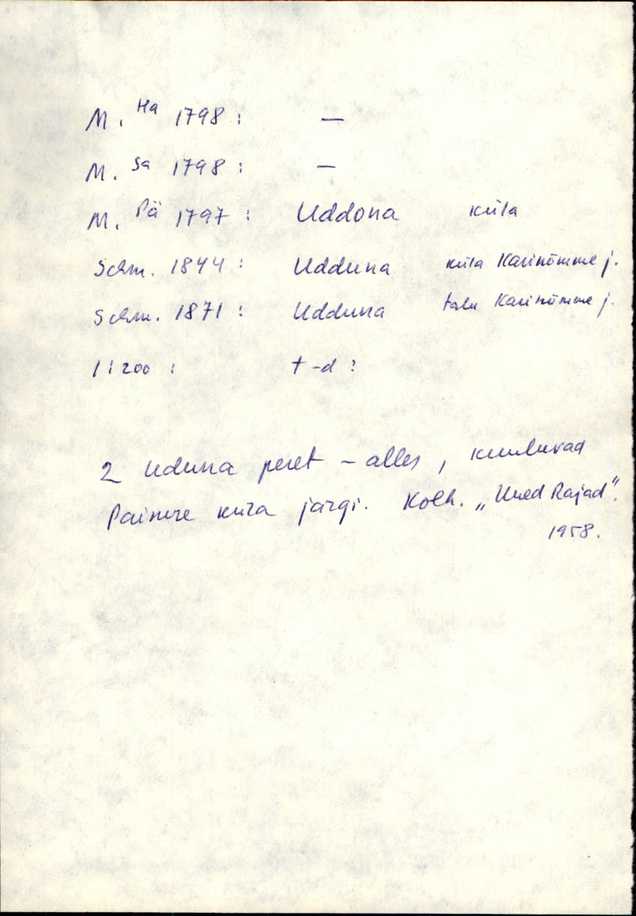 M. Ha 1798 : —
M. Sa 1798 : —
M. Pä 1797 : Uddona küla
Schm. 1844 : Udduna küla Karinõmme j.
Schm. 1871 : Udduna talu Karinõmme j.
1:200 : t-d :
2 Uduna peret – alles, kuuluvad
Painure küla järgi. Kolh. „Uued Rajad".
1958.